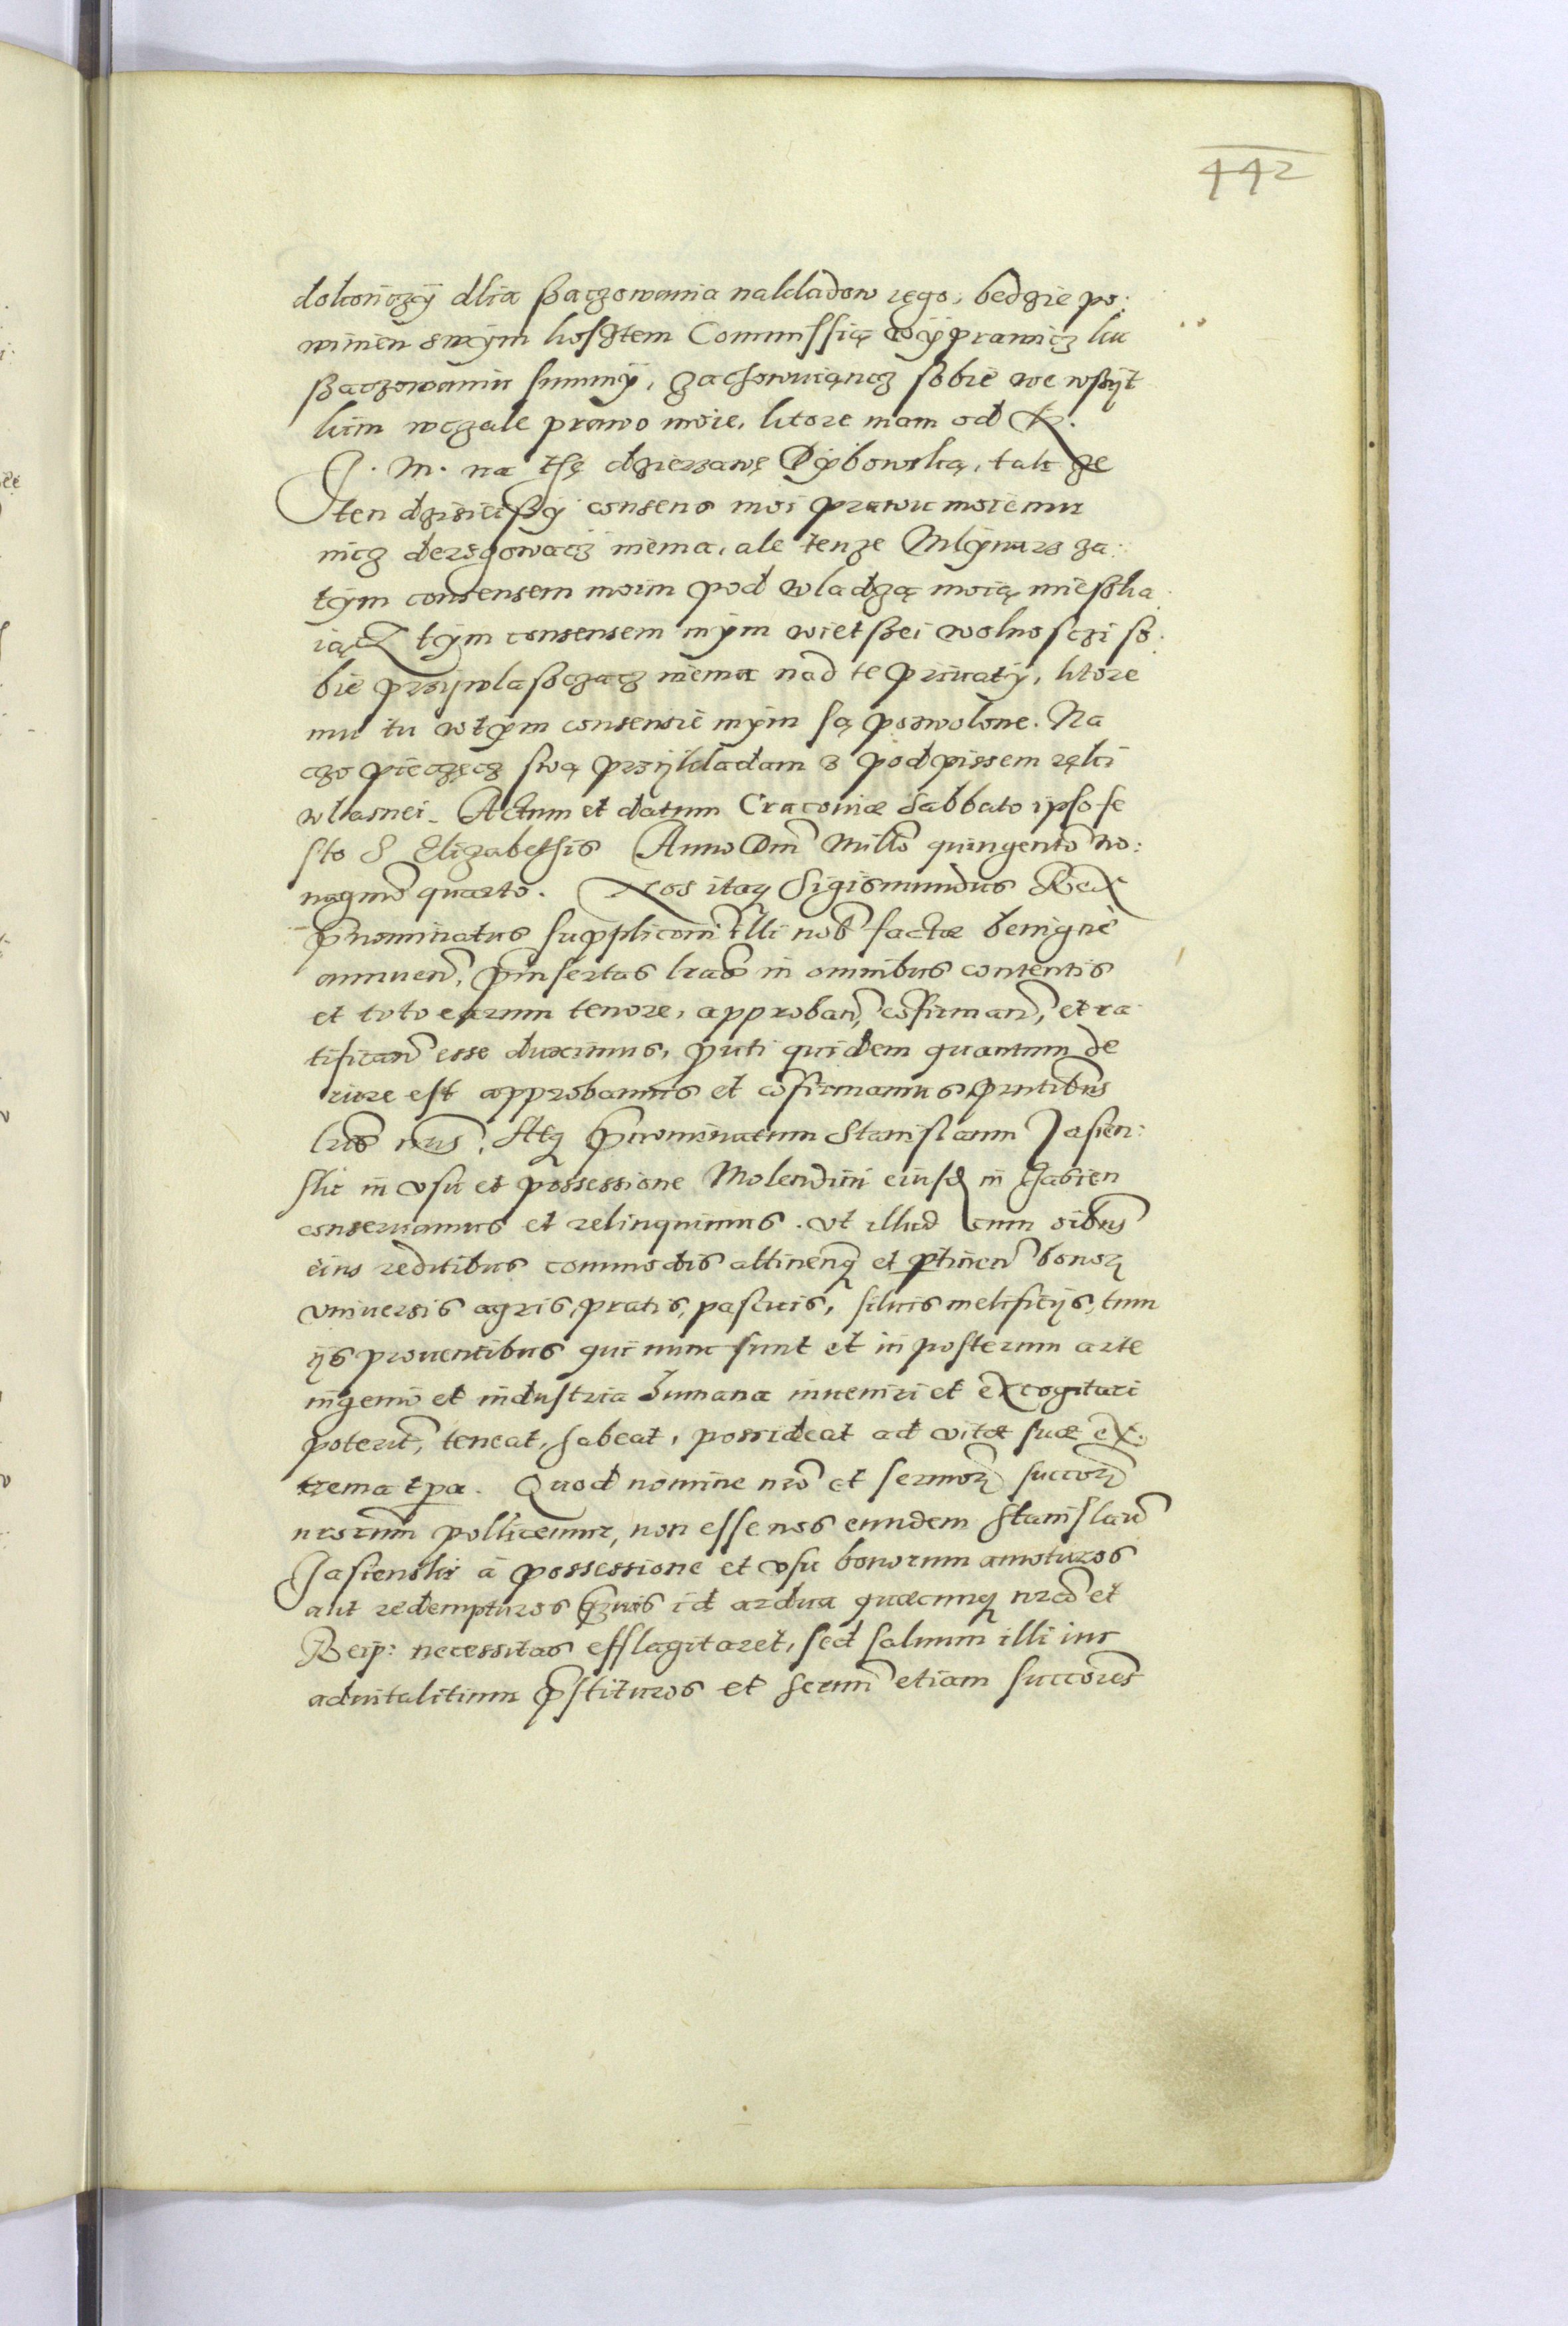 442
dokończÿ dlia ßaczowania nakladow iego, bedzie po:
winien swÿm kosztem Commissią wÿprawicz ku
ßaczowaniu summÿ, zachowuiąncz sobie we wßÿt
kim wczale prawo moie, ktore mam od K.
J. M. na thę dzierzawę Dÿbowską, tak ze
ten dzisieißÿ consens moi prawu moiemu
nicz derogowacz niema, ale tenze Mlÿnarz za:
tÿm consensem moim pod wladzą moią mießka
iącz tÿm consensem mÿm wietßei wolnosczi so:
bie przÿwlaßczacz niema nad te priuatÿ, ktore
mu tu wtÿm consensie mÿm są pozwolone. Na
czo pieczęcz swą przÿkladam z podpissem ręki
wlasnei. Actum et datum Cracoviæ Sabbato ipso fe
sto S Elizabethis Anno Dni Millo quingento No:
nagmo quarto. Nos itaq Sigismundus Rex
pnominatus suppliconi illi nob factæ benigne
annuen, pinsertas lras in omnibus contentis
et toto earum tenore, approban, cofirman, et ra
tifican esse duximus, puti quidem quantum de
iure est approbamus et cofirmamus pntibus
lris nris. Atq pnominatum Stanislaum Jasien:
ski in vsu et possessione Molendini eiusd in Gabien
conseruamus et relinquimus. vt illud cum oibus
eius reditibus commodis attinenq et ptinen bonor
vniuersis agris, pratis, pascuis, siluis melificijs, tum
ijs prouentibus qui nunc sunt et in posterum arte
ingenio et industria humana inueniri et excogitari
poterit, teneat, habeat, possideat ad vitæ suæ ex:
trema tpa. Quod nomine nro et sermor succor
nrorum pollicemur, non esse nos eundem Stanislau
Jasienski à possessione et vsu bonorum amoturos
aut redempturos quis id ardua quæcunq nra et
Reip: necessitas efflagitaret, sed saluum illi ius
aduitalitium pstituros et sermi etiam succores